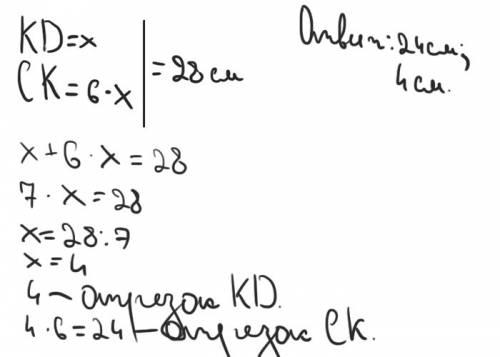 KD=x
CK=6·x
=28 см
Ответ: 24см;
4см.
x+6·x=28
7·x=28
x=28:7
x=4
4 – отрезок KD.
4·6=24 – отрезок CK.